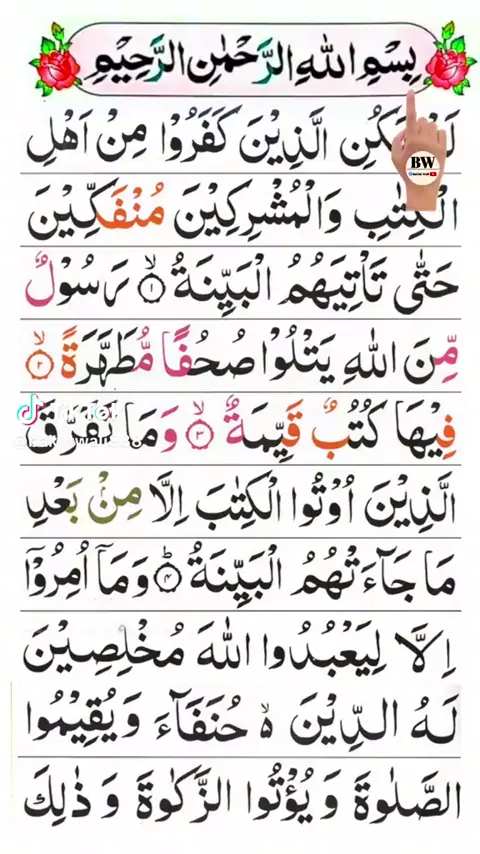 بِسْمِ اللهِ الرَّحْمٰنِ الرَّحِيْمِ
الَّذِيْنَ كَفَرُوْا مِنْ اَهْلِ
BW
الْكِتٰبِ وَالْمُشْرِكِيْنَ مُنْفَكِّيْنَ
حَتّٰى تَاْتِيَهُمُ الْبَيِّنَةُ ۙ﴿۱﴾ رَسُوْلٌ
مِّنَ اللهِ يَتْلُوْا صُحُفًا مُّطَهَّرَةً ۙ﴿۲﴾
فِيْهَا كُتُبٌ قَيِّمَةٌ ۙ﴿۳﴾ وَمَا تَفَرَّقَ
الَّذِيْنَ اُوْتُوا الْكِتٰبَ اِلَّا مِنْۢ بَعْدِ
مَا جَآءَتْهُمُ الْبَيِّنَةُ ؕ﴿۴﴾ وَمَآ اُمِرُوْٓا
اِلَّا لِيَعْبُدُوا اللهَ مُخْلِصِيْنَ
لَهُ الدِّيْنَ ۙ حُنَفَآءَ وَيُقِيْمُوا
الصَّلٰوةَ وَيُؤْتُوا الزَّكٰوةَ وَذٰلِكَ